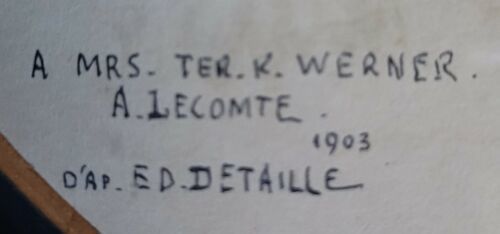 A MRS. TER. K. WERNER.
A. LECOMTE.
1903
D'AP. ED. DETAILLE